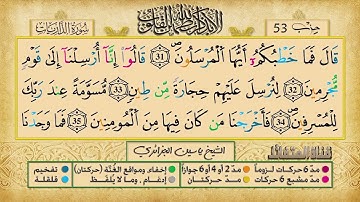 سُورَةُ الذَّارِيَاتِ
أَلَا بِذِكْرِ اللَّهِ تَطْمَئِنُّ الْقُلُوبُ
حِزْب 53
قَالَ فَمَا خَطْبُكُمْ أَيُّهَا الْمُرْسَلُونَ ۖ (31) قَالُوا إِنَّا أُرْسِلْنَا إِلَىٰ قَوْمٍ
مُّجْرِمِينَ (32) لِنُرْسِلَ عَلَيْهِمْ حِجَارَةً مِّن طِينٍ (33) مُّسَوَّمَةً عِندَ رَبِّكَ
لِلْمُسْرِفِينَ ۖ (34) فَأَخْرَجْنَا مَن كَانَ فِيهَا مِنَ الْمُؤْمِنِينَ ۖ (35) فَمَا وَجَدْنَا
الشيخ ياسين الجزائري
مدّ 6 حركات لزوماً مدّ 2 أو 4 أو 6 جوازاً إخفاء، ومواقع الغُنَّة (حركتان) تفخيم
مدّ مشبع 6 حركات مدّ حركتان إدغام، وما لا يُلفَظ قلقلة